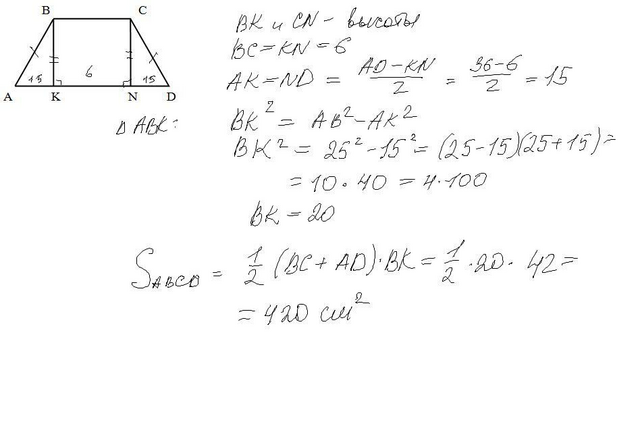 B C
15 6 15
A K N D
BK и CN - высоты
BC = KN = 6
AK = ND = (AD - KN)/2 = (36 - 6)/2 = 15
Δ ABK:
BK² = AB² - AK²
BK² = 25² - 15² = (25-15)(25+15) =
= 10 · 40 = 4 · 100
BK = 20
S_ABCD = 1/2 (BC + AD) · BK = 1/2 · 20 · 42 =
= 420 см²